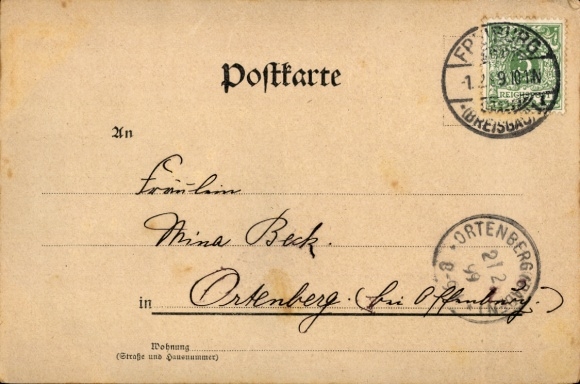 FREIBURG
-1.2.99.10-11N.
(BREISGAU)
5
REICHSPOST
Postkarte
An
Fräulein
Mina Beck.
ORTENBERG (BADEN)
2 / 2
99
in Ortenberg. (bei Offenburg.)
Wohnung
(Straße und Hausnummer)